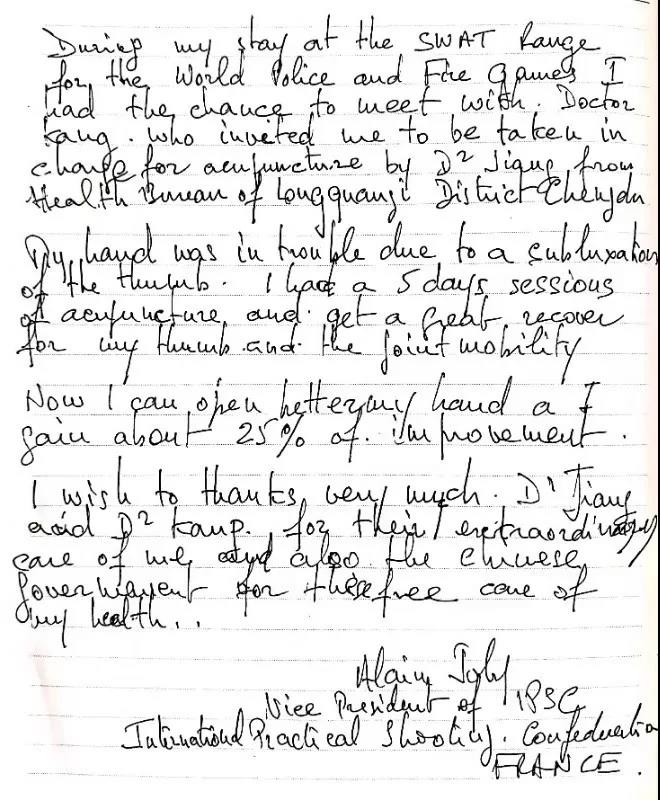 During my stay at the SWAT Range
for the World Police and Fire Games I
had the chance to meet with. Doctor
Kang. who invited me to be taken in
charge for acupuncture by Dr Jiang from
Health Bureau of Longquanyi District Chengdu
My hand was in trouble due to a subluxation
of the thumb. I had a 5 days sessions
of acupuncture and get a great recover
for my thumb and the joint mobility
Now I can open better my hand a I
gain about 25% of improvement.
I wish to thanks very much. Dr Jiang
and Dr Kang. for their extraordinary
care of me and also the chinese
government for these free care of
my health...
Alain
Vice President of IPSC
International Practical Shooting. Confederation
FRANCE.